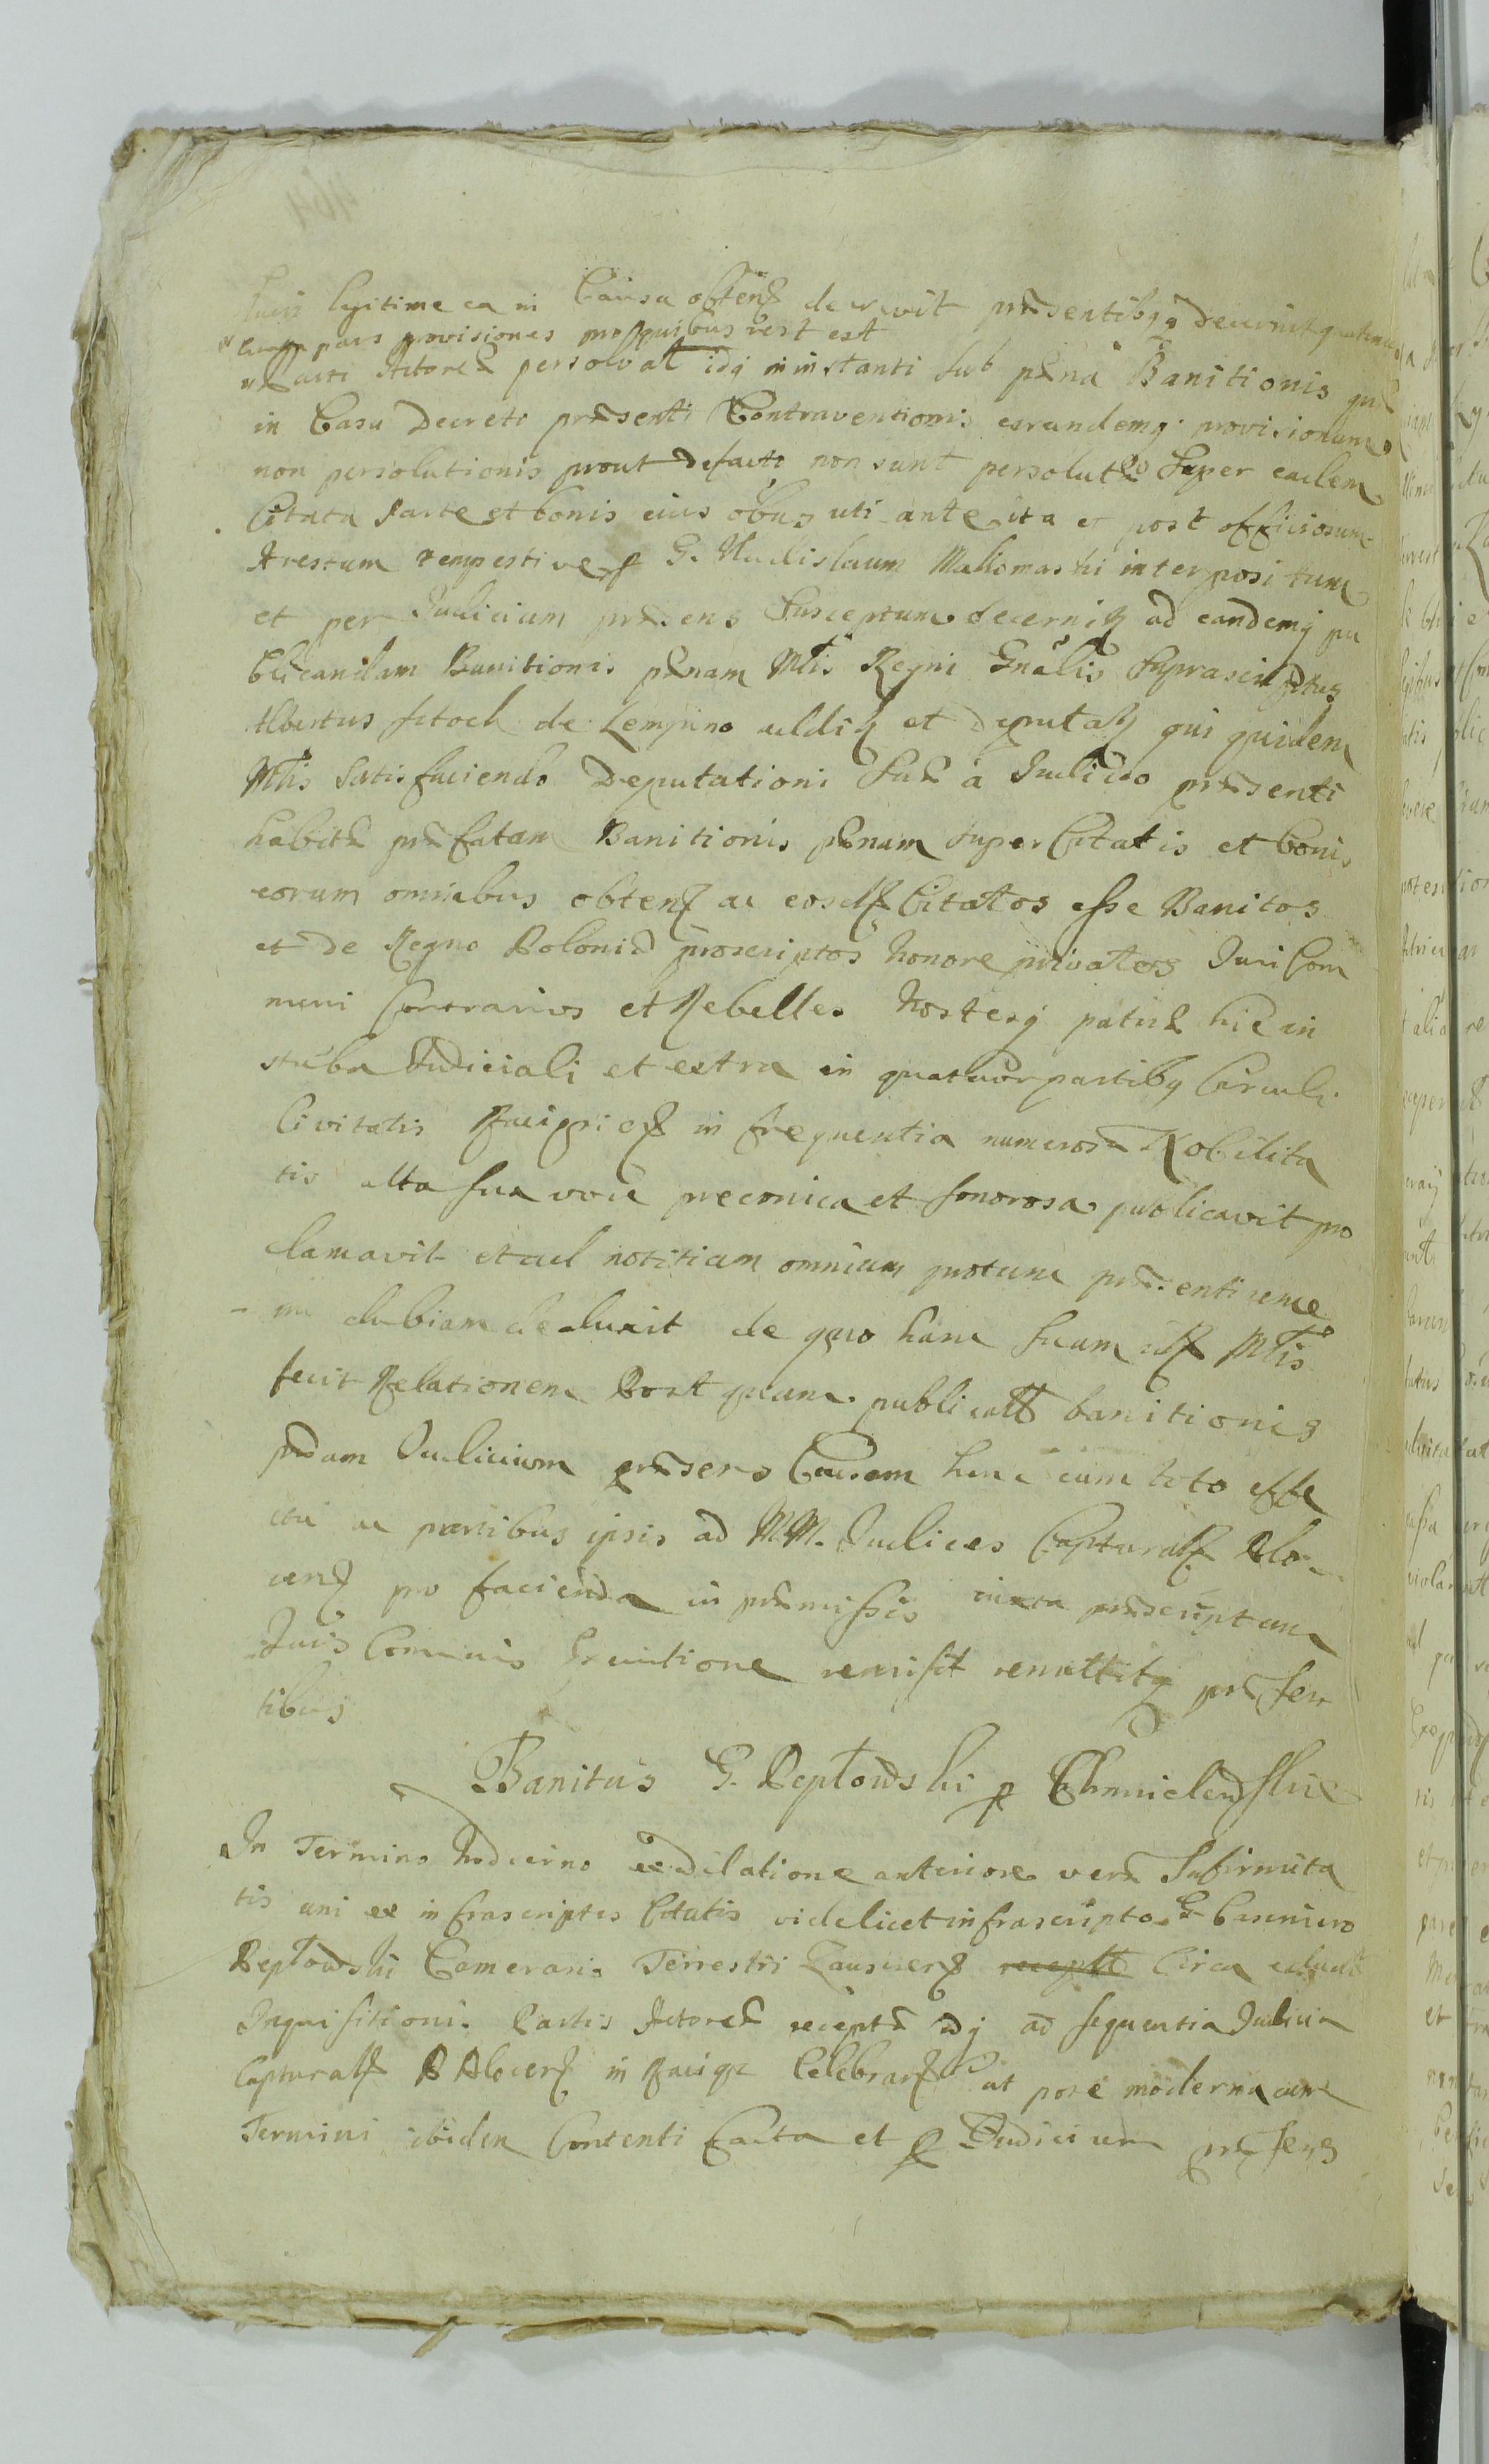 legitime ea in Causa obtenẜ decrevit præsentibꝙ decernit quatenus
Citata pars provisiones pro quibus rest est
Parti Actoreæ persolvat idq̃ in instanti sub pæna Banitionis quæ
in Casu Decreti præsenti Contraventionis earundemq̃ provisionum
non persolutionis prout defacto non sunt persolutæ Super eadem
Citata Parte et bonis eius oĩbus uti ante ita et post officiosum
Arestum tempestive ꝑ G. Uladislaum Makomaski interpositum
et per Judicium præsens Susceptum decernitꝫ ad eandemq̃ pu
blicandam Banitionis pænam Mtis Regni Gnãlis Supra scriptus
Albertus ſtoch de Lempino additꝫ et deputatꝫ qui quidem
Mtis Satisfaciendo Deputationi Suæ a Judicio præsenti
habitæ præfatam Banitionis pænam super Citatis et bonis
eorum omnibus obtenẜ ac eosdẜ Citatos eſse Banitos
et de Regno Poloniæ proscriptos honore privatos Juri Com
muni Contrarios et Rebelles hostesq̃ patriæ hic in
stuba Judiciali et extra in quatuor partibꝙ Circuli
Civitatis in frequentia numerosa Nobilita
tis alta sua voce preconica et sonorosa publicavit pro
clamavit et ad notitiam omnium quotum præsenti reme
dubiam deduxit de quo hanc suam idẜ Mtis
fecit Relationem Post quam publicatæ banitionis
pænam Judicium præsens Causam hanc cum toto effe
ctu ac partibus ipsis ad M.M. Judices Capturalẜ Plo
cenẜ pro facienda in præmiſsis iuxta præscriptum
Juris Comunis Executione remiſit remittitꝙ præsen
tibus
Banitus G. Peplowski ꝑ
In Termino hodierno ex dilatione anteriore veræ Infirmita
tis uni ex infrascriptis Citatis videlicet infrascripto G.
Peplowski Camerario Terrestri receptæ Circa
Inquisitioni Partis Actoreæ receptæ adq̃ ad sequentia Judicia
Capturalẜ Plocenẜ in Celebranẜ ut pote moderna cum
Termini ibidem Contenti facta et ꝑ Judicium præsens